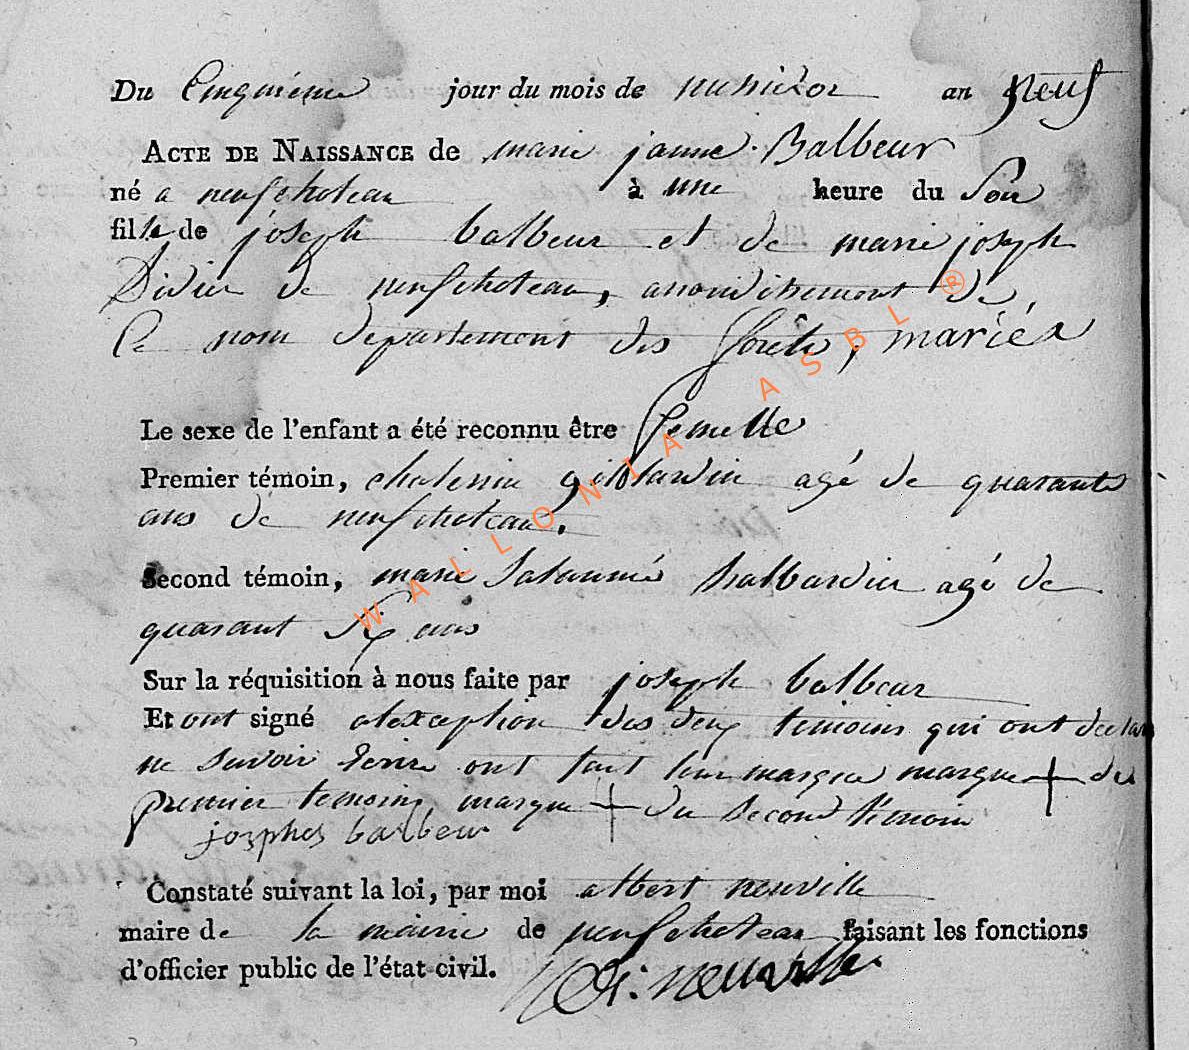 Du Cinquiéme jour du mois de messidor an Neuf
ACTE DE NAISSANCE de marie janne Balbeur
né a neufchoteau à une heure du Soir
fille de joseph balbeur et de marie joseph
Didier de neufchoteau, arrondissement de
Ce nom departement des forêts, mariés
Le sexe de l'enfant a été reconnu être femelle
Premier témoin, gillardin agé de quarante
ans de neufchoteau.
Second témoin, marie halbardier agé de
quarant Six ans
Sur la réquisition à nous faite par joseph balbeur
Et ont signé alexception des deux temoins qui ont declaré
ne savoir Ecrire ont fait leur marque marque + du
premier temoins marque + du second témoin
josphes balbeur
Constaté suivant la loi, par moi albert neuville
maire de la mairie de neufchoteau faisant les fonctions
d'officier public de l'état civil. neuville
WALLONIA ASBL ®